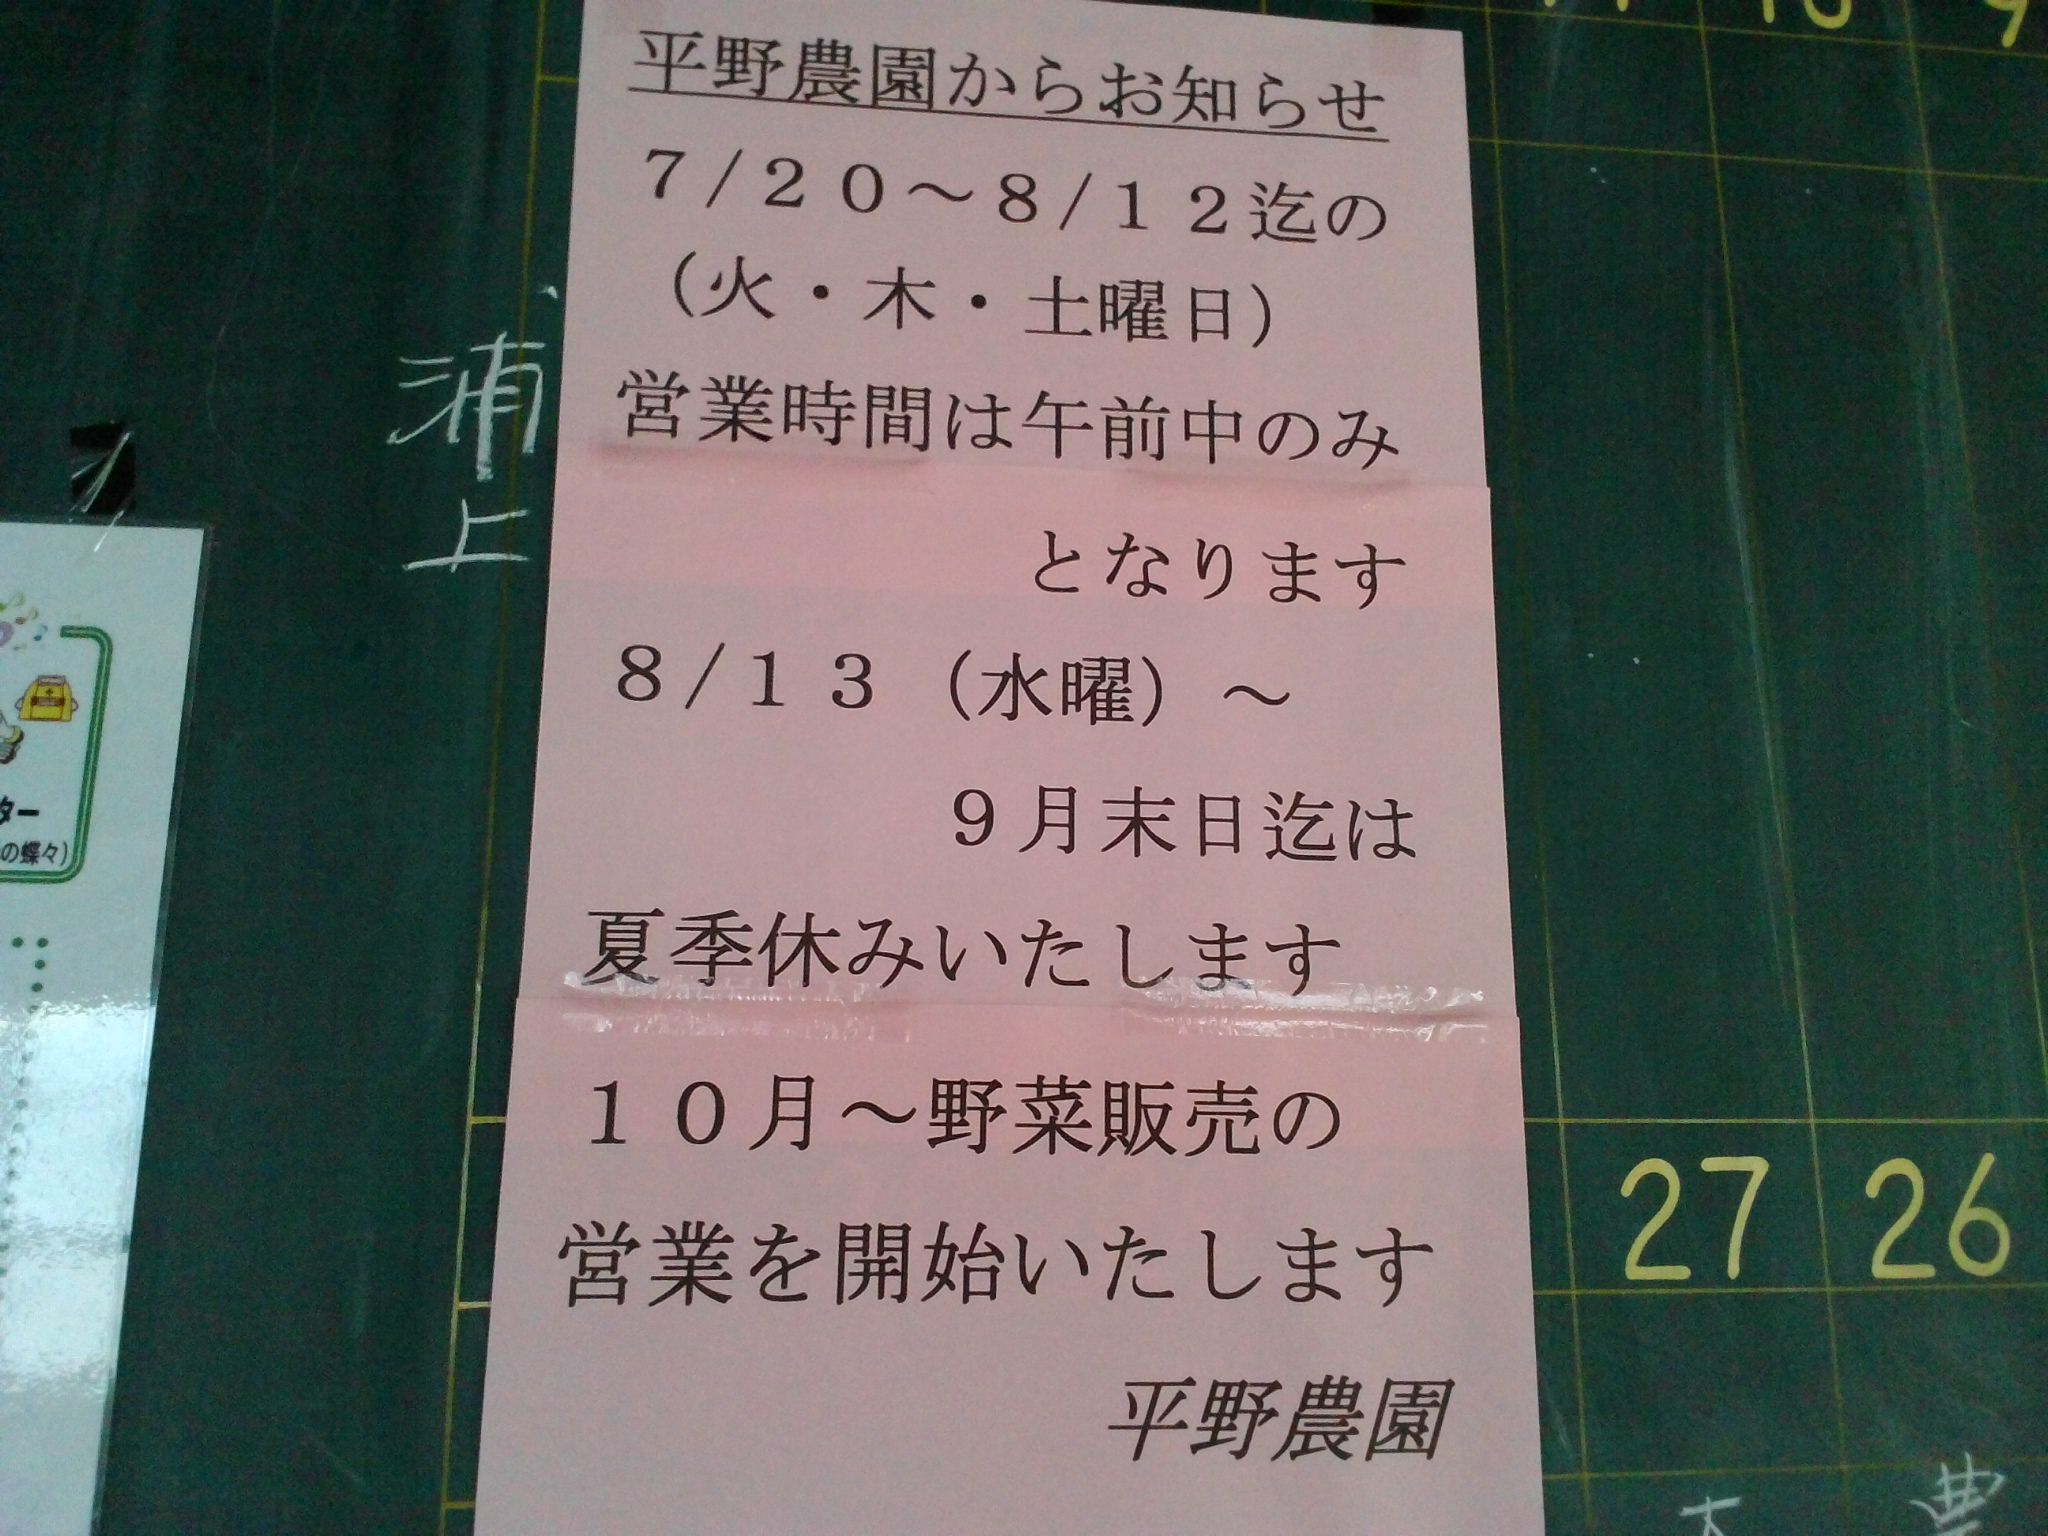 平野農園からお知らせ
７/２０～８/１２迄の
（火・木・土曜日）
営業時間は午前中のみ
となります
８/１３（水曜）～
９月末日迄は
夏季休みいたします
１０月～野菜販売の
営業を開始いたします
平野農園
浦上
ター
の蝶々）
27 26